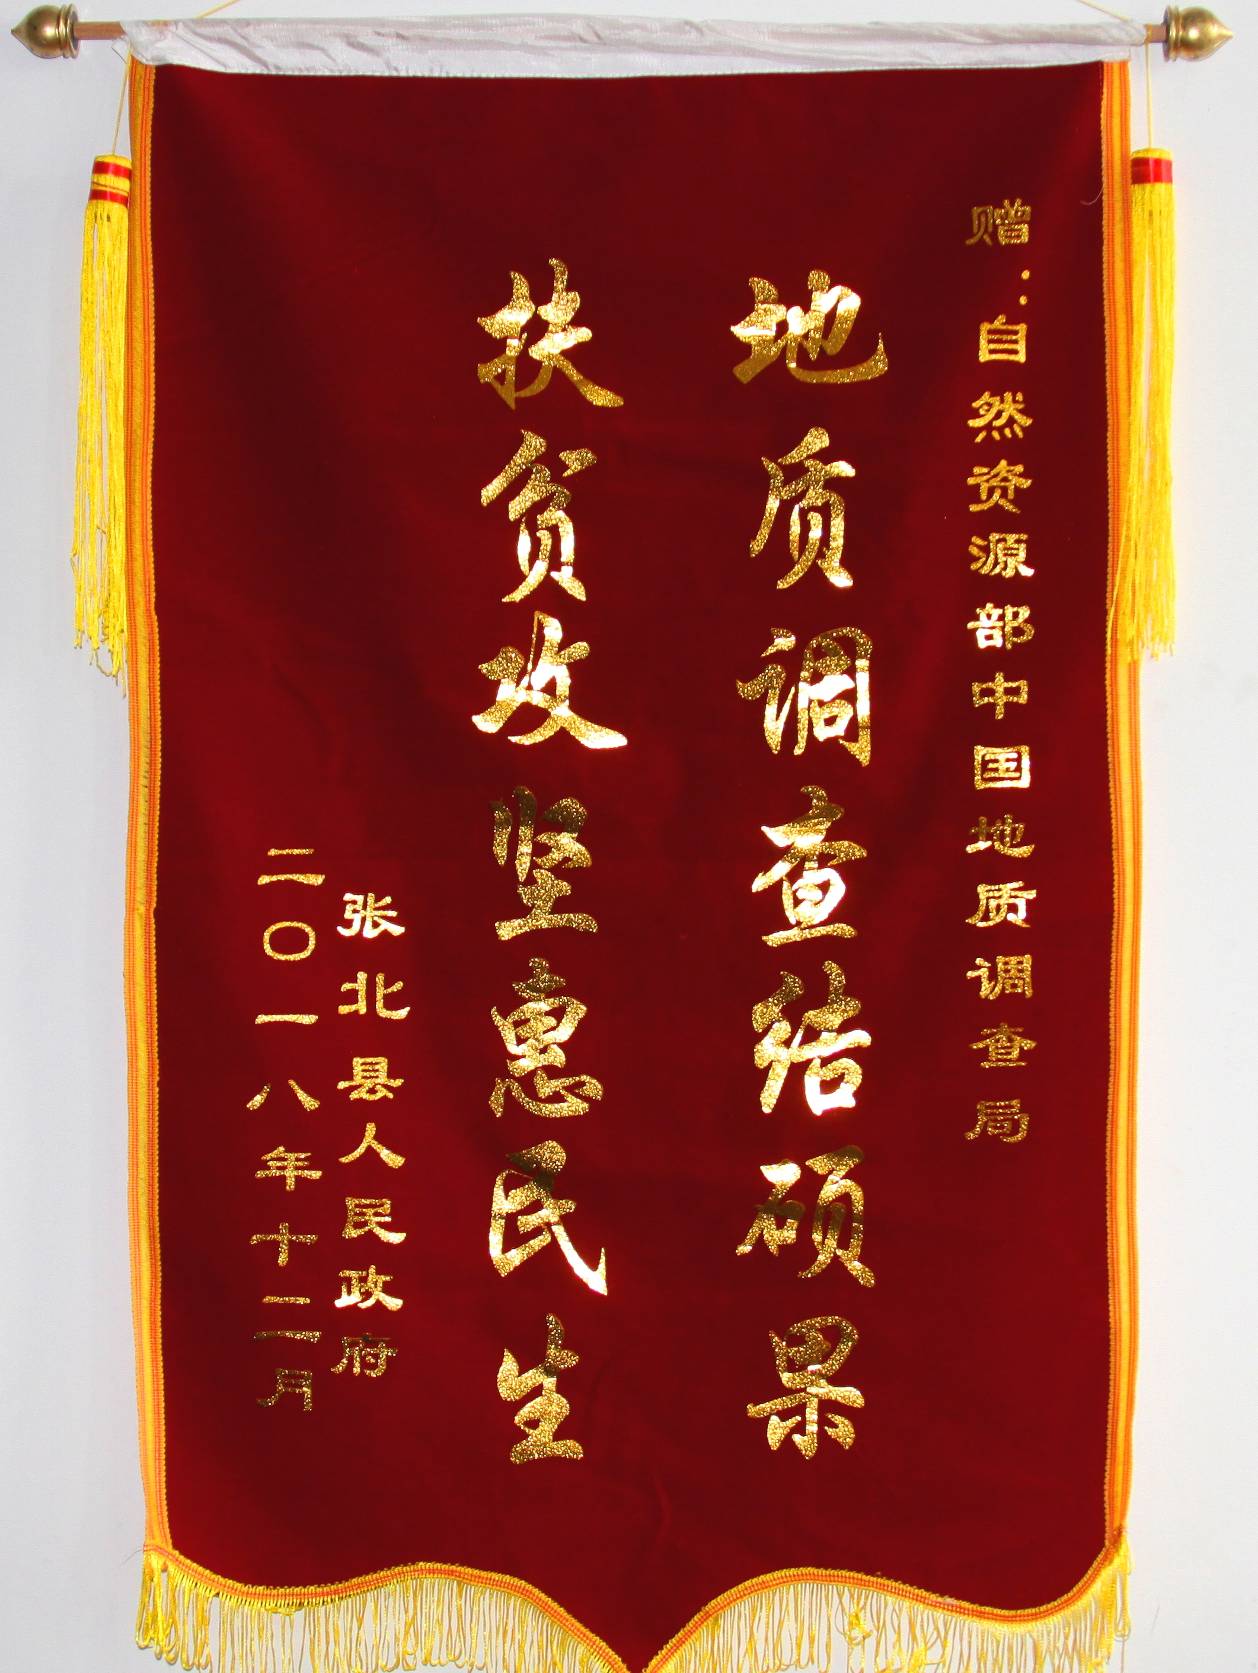 赠：自然资源部中国地质调查局
地质调查结硕果
扶贫攻坚惠民生
张北县人民政府
二〇一八年十二月